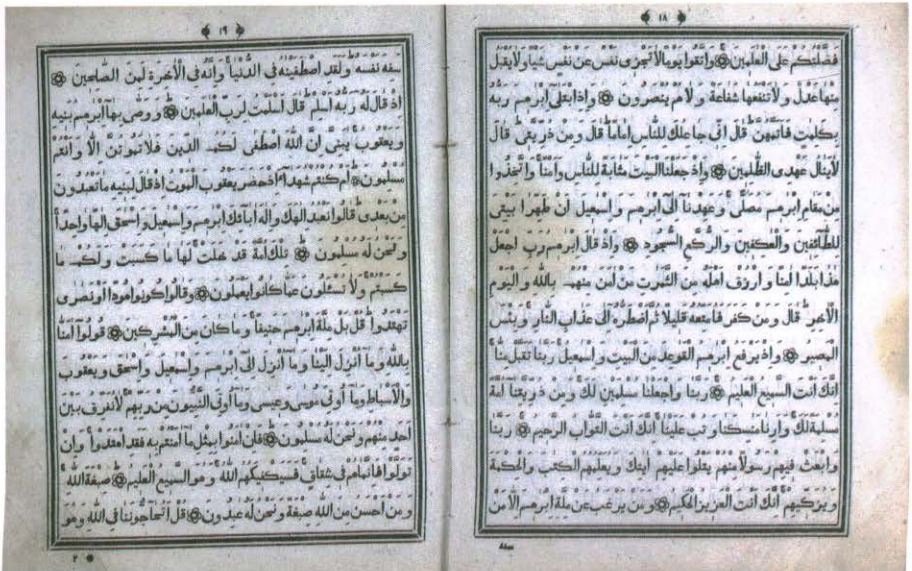 ١٨
فضلتكم على العلمين واتقوا يوما لا تجزى نفس عن نفس شيا ولا يقبل
منها عدل ولا تنفعها شفاعة ولا هم ينصرون واذ ابتلى ابرهم ربه
بكلمت فاتمهن قال انى جاعلك للناس اماما قال ومن ذريتى قال
لا ينال عهدى الظلمين واذ جعلنا البيت مثابة للناس وامنا واتخذوا
من مقام ابرهم مصلى وعهدنا الى ابرهم واسمعيل ان طهرا بيتى
للطائفين والعكفين والركع السجود واذ قال ابرهم رب اجعل
هذا بلدا امنا وارزق اهله من الثمرت من امن منهم بالله واليوم
الاخر قال ومن كفر فامتعه قليلا ثم اضطره الى عذاب النار وبئس
المصير واذ يرفع ابرهم القواعد من البيت واسمعيل ربنا تقبل منا
انك انت السميع العليم ربنا واجعلنا مسلمين لك ومن ذريتنا امة
مسلمة لك وارنا مناسكنا وتب علينا انك انت التواب الرحيم ربنا
وابعث فيهم رسولا منهم يتلوا عليهم ايتك ويعلمهم الكتب والحكمة
ويزكيهم انك انت العزيز الحكيم ومن يرغب عن ملة ابرهم الا من
سفه
١٩
سفه نفسه ولقد اصطفينه فى الدنيا وانه فى الاخرة لمن الصلحين
اذ قال له ربه اسلم قال اسلمت لرب العلمين ووصى بها ابرهم بنيه
ويعقوب يبنى ان الله اصطفى لكم الدين فلا تموتن الا وانتم
مسلمون ام كنتم شهداء اذ حضر يعقوب الموت اذ قال لبنيه ما تعبدون
من بعدى قالوا نعبد الهك واله ابائك ابرهم واسمعيل واسحق الها واحدا
ونحن له مسلمون تلك امة قد خلت لها ما كسبت ولكم ما
كسبتم ولا تسئلون عما كانوا يعملون وقالوا كونوا هودا او نصرى
تهتدوا قل بل ملة ابرهم حنيفا وما كان من المشركين قولوا امنا
بالله وما انزل الينا وما انزل الى ابرهم واسمعيل واسحق ويعقوب
والاسباط وما اوتى موسى وعيسى وما اوتى النبيون من ربهم لا نفرق بين
احد منهم ونحن له مسلمون فان امنوا بمثل ما امنتم به فقد اهتدوا وان
تولوا فانما هم فى شقاق فسيكفيكهم الله وهو السميع العليم صبغة الله
ومن احسن من الله صبغة ونحن له عبدون قل اتحاجوننا فى الله وهو
٢